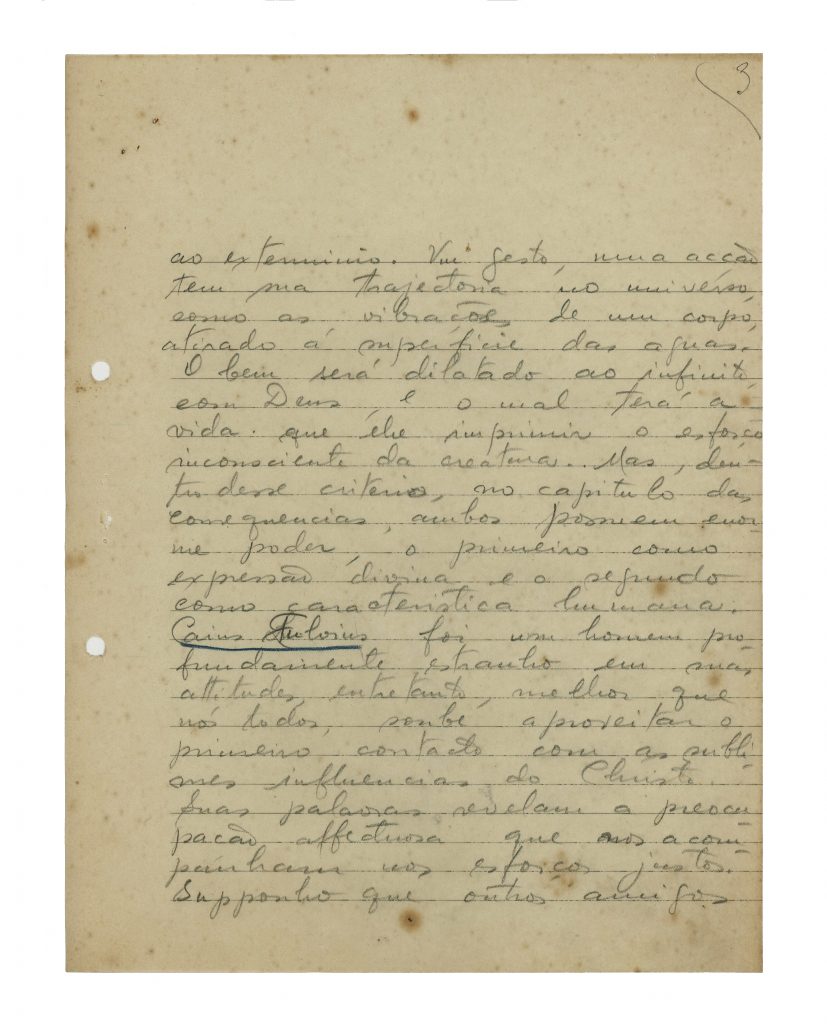 3
ao exterminio. Um gesto, uma acção
tem sua trajectoria no universo,
como as vibrações de um corpo,
atirado á superficie das aguas.
O bem será dilatado ao infinito,
com Deus, e o mal terá a
vida que lhe imprimir o esforço
inconsciente da creatura. Mas, den-
tro desse criterio, no capitulo das
consequencias, ambos possuem enor-
me poder, o primeiro como
expressão divina e o segundo
como caracteristica humana.
Caius Fulvius foi um homem pro
fundamente estranho em suas
attitudes, entretanto, melhor que
nós todos, soube aproveitar o
primeiro contacto com as subli-
mes influencias do Christo.
Suas palavras revelam a preocu-
pacão affectuosa que nos acom-
panham nos esforços justos.
Supponho que outros amigos